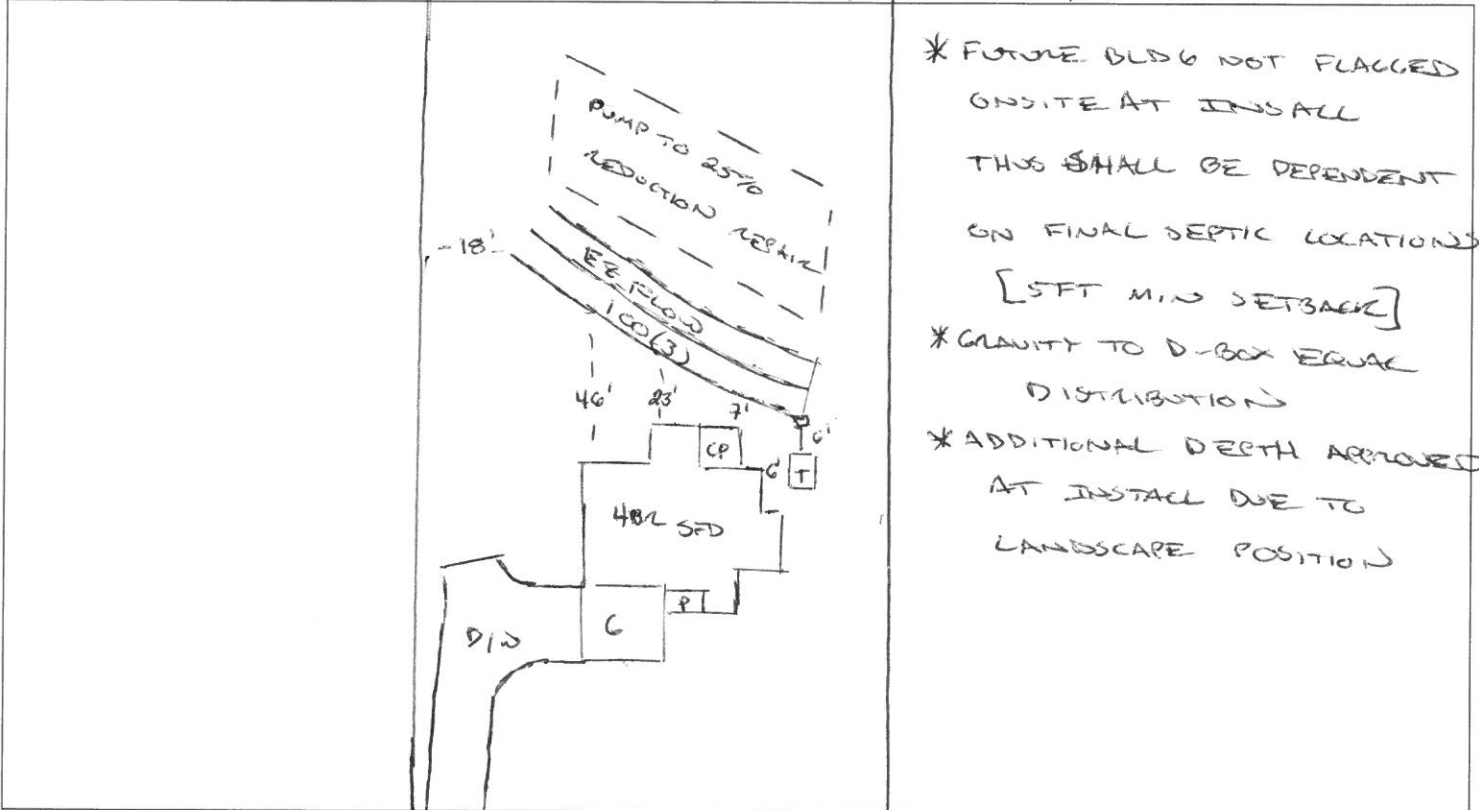 PUMP TO 25%
REDUCTION REPAIR
-18'-
EZ FLOW
100(3)
46'
23'
7'
6'
CP
6'
T
4BR SFD
P
G
D/W
* FUTURE BLDG NOT FLAGGED
ONSITE AT INSALL
THUS SHALL BE DEPENDENT
ON FINAL SEPTIC LOCATIONS
[5FT MIN SETBACK]
* GRAVITY TO D-BOX EQUAL
DISTRIBUTION
* ADDITIONAL DEPTH APPROVED
AT INSTALL DUE TO
LANDSCAPE POSITION